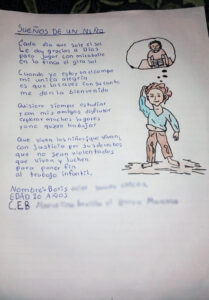 SUEÑOS DE UN NIÑO
Cada día que sale el sol
Le doy gracias a Dios
para jugar con mi abuelo
En la finca el gira sol
Cuando yo estoy en el campo
mi unica alegria
es que las aves con su canto
me dan la bienvenida
Quisiera siempre estudiar
y con mis amigos disfrutar
explorar muchos lugares
y no quiero trabajar
Que vivan los niños ¡que vivan!
con justicia por sus derechos
que no sean violentados
que vivan y luchen
para poner fin
al trabajo infantil,
Nombre: Boris
EDAD 10 AÑOS
C.E.B